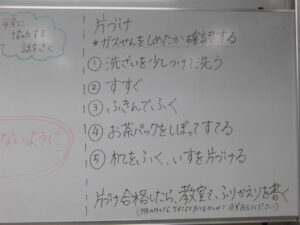 安全に
話をきく
ないように
片づけ
*ガスせんをしめたか確認する
① 洗ざいを少しつけて洗う
② すすぐ
③ ふきんでふく
④ お茶パックをしぼってすてる
⑤ 机をふく、いすを片づける
片づけ合格したら、教室で、ふりかえりを書く